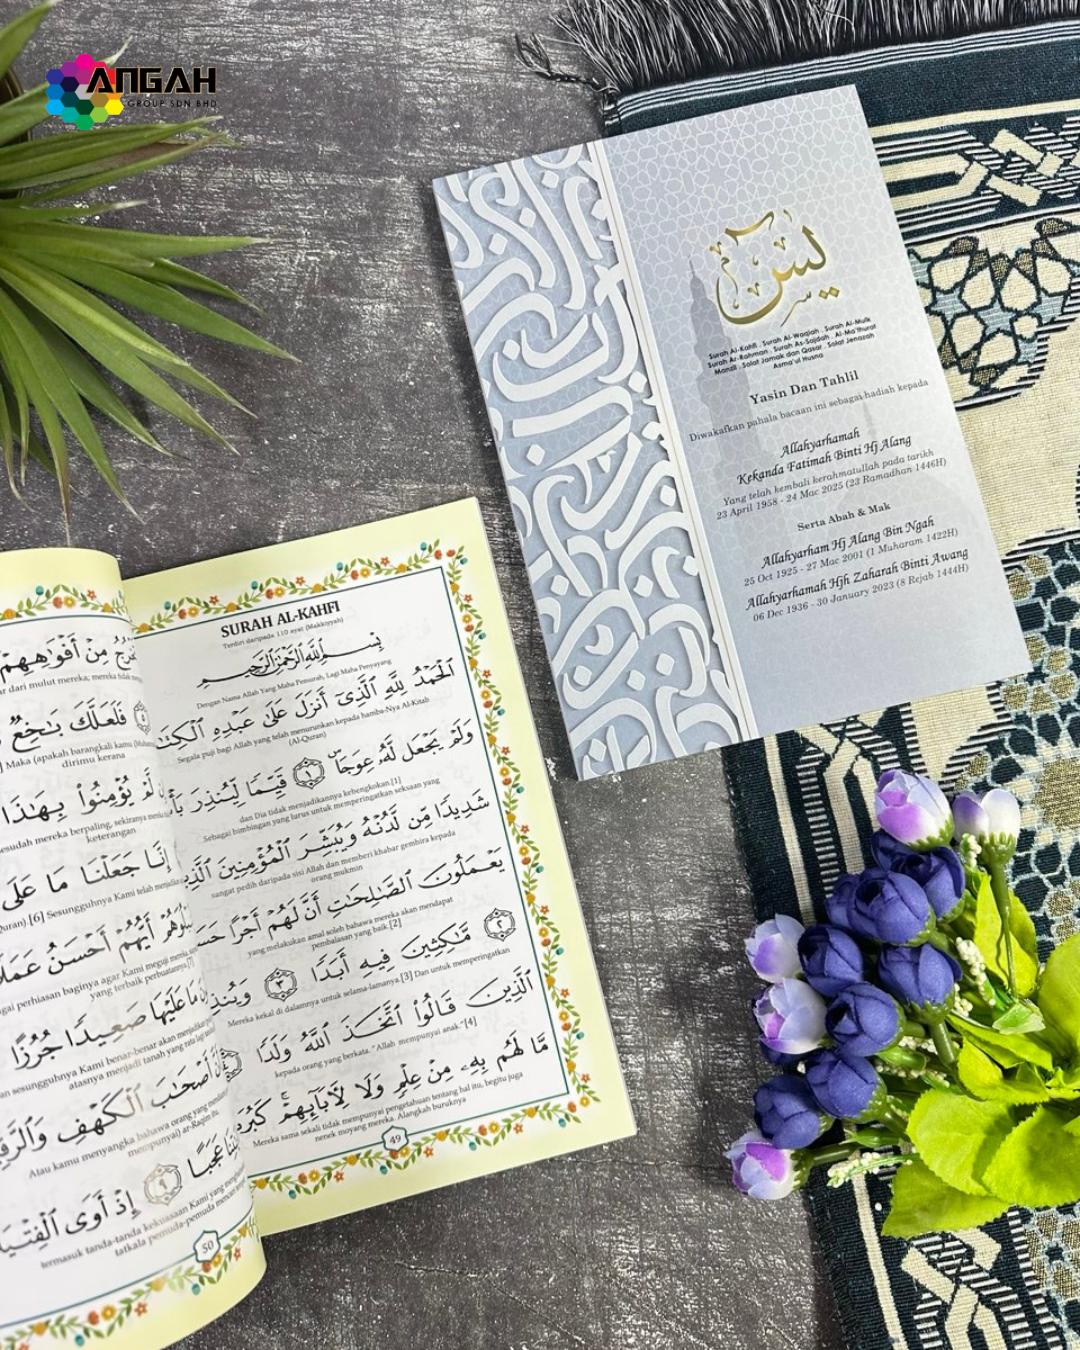 ANGAH
GROUP SDN BHD
يس
Surah Al-Kahfi . Surah Al-Waqiah . Surah Al-Mulk
Surah Ar-Rahman . Surah As-Sajdah . Al-Ma'thurat
Manzil . Solat Jamak dan Qasar . Solat Jenazah
Asma'ul Husna
Yasin Dan Tahlil
Diwakafkan pahala bacaan ini sebagai hadiah kepada
Allahyarhamah
Kekanda Fatimah Binti Hj Alang
Yang telah kembali kerahmatullah pada tarikh
23 April 1958 - 24 Mac 2025 (23 Ramadhan 1446H)
Serta Abah & Mak
Allahyarham Hj Alang Bin Ngah
25 Oct 1925 - 27 Mac 2001 (1 Muharam 1422H)
Allahyarhamah Hjh Zaharah Binti Awang
06 Dec 1936 - 30 January 2023 (8 Rejab 1444H)
SURAH AL-KAHFI
Terdiri daripada 110 ayat (Makkiyyah)
بِسْمِ اللَّهِ الرَّحْمَٰنِ الرَّحِيمِ
Dengan Nama Allah Yang Maha Pemurah, Lagi Maha Penyayang
الْحَمْدُ لِلَّهِ الَّذِي أَنزَلَ عَلَىٰ عَبْدِهِ الْكِتَابَ
Segala puji bagi Allah yang telah menurunkan kepada hamba-Nya Al-Kitab
(Al-Quran)
وَلَمْ يَجْعَل لَّهُ عِوَجًا ۜ ١ قَيِّمًا لِّيُنذِرَ بَأْ
dan Dia tidak menjadikannya kebengkokan.[1]
Sebagai bimbingan yang lurus untuk memperingatkan seksaan yang
شَدِيدًا مِّن لَّدُنْهُ وَيُبَشِّرَ الْمُؤْمِنِينَ الَّذِينَ
sangat pedih daripada sisi Allah dan memberi khabar gembira kepada
orang mukmin
يَعْمَلُونَ الصَّالِحَاتِ أَنَّ لَهُمْ أَجْرًا حَسَ
yang melakukan amal soleh bahawa mereka akan mendapat
pembalasan yang baik.[2]
٢ مَّاكِثِينَ فِيهِ أَبَدًا ٣ وَيُنذِرَ
Mereka kekal di dalamnya untuk selama-lamanya.[3] Dan untuk memperingatkan
الَّذِينَ قَالُوا اتَّخَذَ اللَّهُ وَلَدًا
kepada orang yang berkata. "Allah mempunyai anak."[4]
مَّا لَهُم بِهِ مِنْ عِلْمٍ وَلَا لِآبَائِهِمْ ۚ كَبُرَ
Mereka sama sekali tidak mempunyai pengetahuan tentang hal itu, begitu juga
nenek moyang mereka. Alangkah buruknya
49
مِنْ أَفْوَاهِهِمْ
dari mulut mereka; mereka tidak
٥ فَلَعَلَّكَ بَاخِعٌ
Maka (apakah barangkali kamu
dirimu kerana
لَّمْ يُؤْمِنُوا بِهَٰذَا
sesudah mereka berpaling, sekiranya
keterangan
إِنَّا جَعَلْنَا مَا عَلَى
[6] Sesungguhnya Kami telah
أَيُّهُمْ أَحْسَنُ عَمَلًا
perhiasan baginya agar Kami menguji
yang terbaik perbuatannya.[7]
مَا عَلَيْهَا صَعِيدًا جُرُزًا
sesungguhnya Kami benar-benar akan menjadikan
atasnya menjadi tanah yang rata lagi
أَصْحَابَ الْكَهْفِ وَالرَّقِي
Atau kamu menyangka bahawa orang yang
mempunyai) ar-Raqim itu,
عَجَبًا ٩ إِذْ أَوَى الْفِتْيَةُ
termasuk tanda-tanda kekuasaan Kami yang
tatkala pemuda-pemuda mencari
50